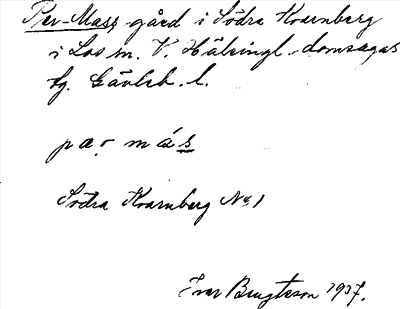 Per-Mass, gård i Södra Kvarnberg
i Los sn. V. Hälsingl. domsagas
tg. Gävleb. l.
pạr más
Södra Kvarnberg No 1
Ivar Bengtsson 1937.